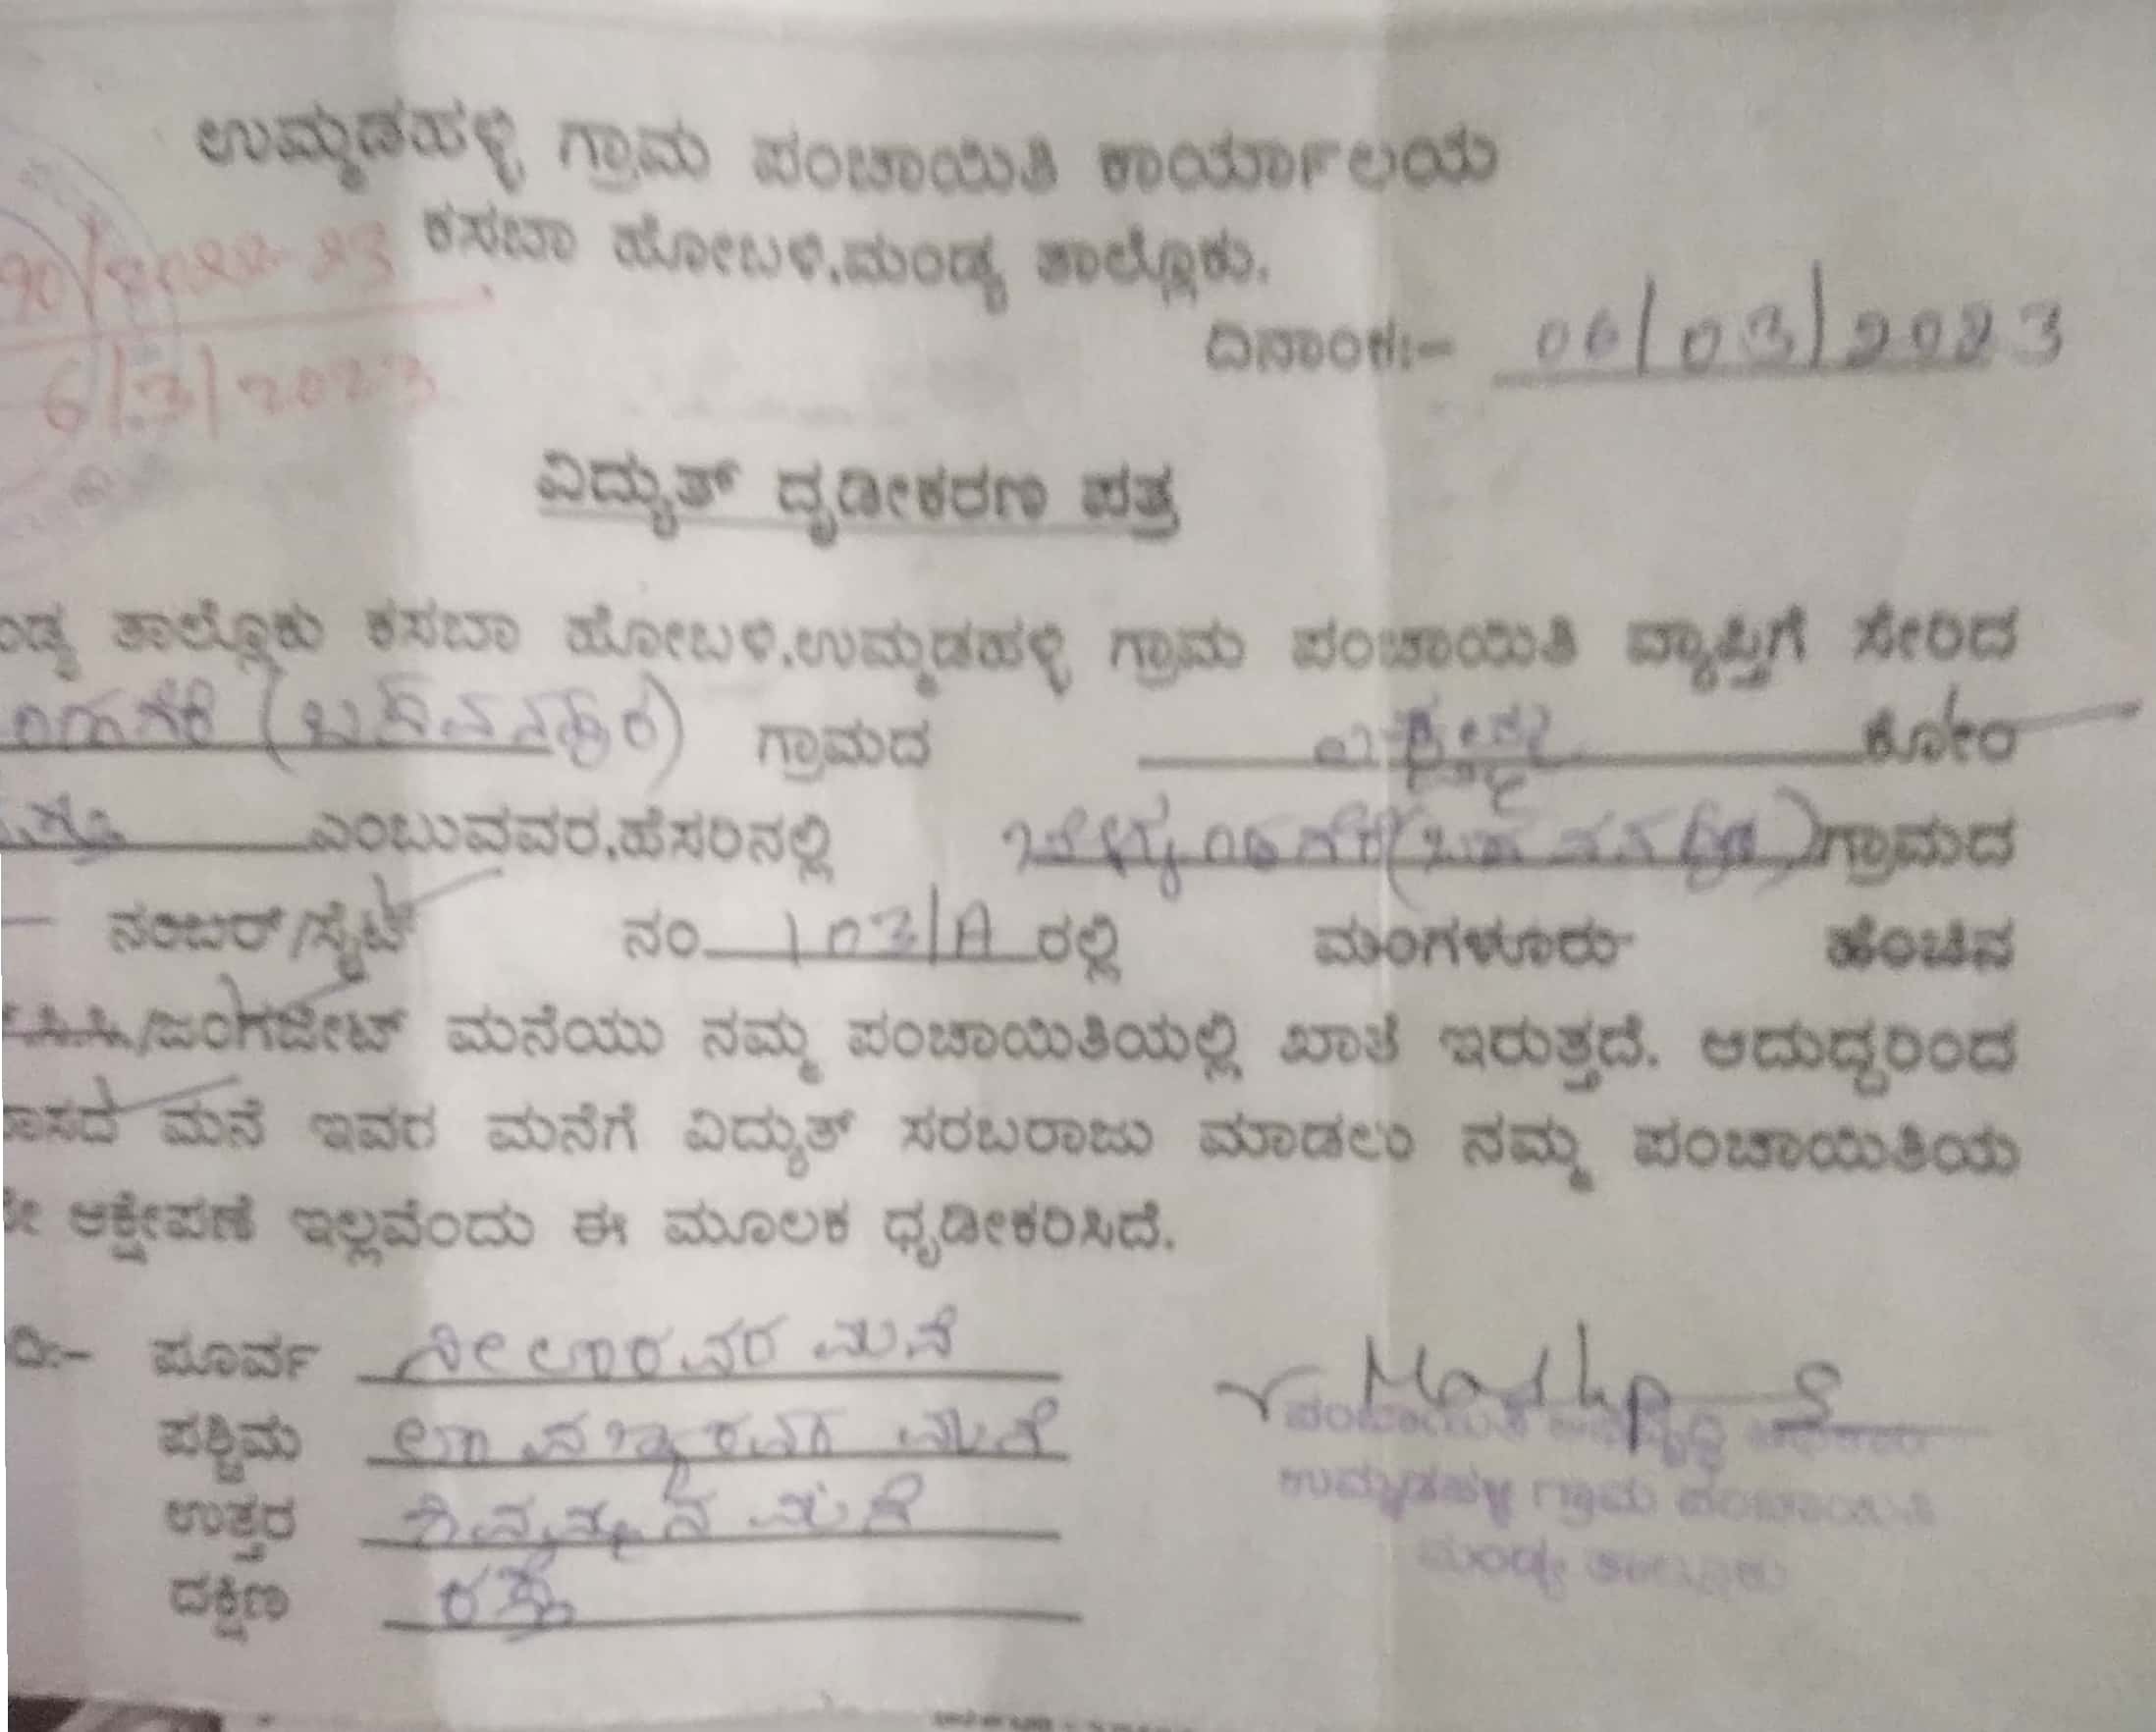 ಉಮ್ಮಡಹಳ್ಳಿ ಗ್ರಾಮ ಪಂಚಾಯಿತಿ ಕಾರ್ಯಾಲಯ
ಕಸಬಾ ಹೋಬಳಿ,ಮಂಡ್ಯ ತಾಲ್ಲೊಕು.
90/2022-23
6/3/2023
ದಿನಾಂಕ:- 06/03/2023
ವಿದ್ಯುತ್ ದೃಡೀಕರಣ ಪತ್ರ
ಂಡ್ಯ ತಾಲ್ಲೊಕು ಕಸಬಾ ಹೋಬಳಿ,ಉಮ್ಮಡಹಳ್ಳಿ ಗ್ರಾಮ ಪಂಚಾಯಿತಿ ವ್ಯಾಪ್ತಿಗೆ ಸೇರಿದ
ಗ್ರಾಮದ ಕೋಂ
ಎಂಬುವವರ,ಹೆಸರಿನಲ್ಲಿ ಗ್ರಾಮದ
ನಂಬರ್/ಸೈಟ್ ನಂ 103/A ರಲ್ಲಿ ಮಂಗಳೂರು ಹೆಂಚಿನ
ಸಿ.ಸಿ/ಜಂಗಜೀಟ್ ಮನೆಯು ನಮ್ಮ ಪಂಚಾಯಿತಿಯಲ್ಲಿ ಖಾತೆ ಇರುತ್ತದೆ. ಆದುದ್ದರಿಂದ
ಾಸದ ಮನೆ ಇವರ ಮನೆಗೆ ವಿದ್ಯುತ್ ಸರಬರಾಜು ಮಾಡಲು ನಮ್ಮ ಪಂಚಾಯಿತಿಯ
ೇ ಆಕ್ಷೇಪಣೆ ಇಲ್ಲವೆಂದು ಈ ಮೂಲಕ ಧೃಡೀಕರಿಸಿದೆ.
ದಿ:- ಪೂರ್ವ ನೀಲಾರವರ ಮನೆ
ಪಶ್ಚಿಮ ಲಾವಣ್ಯರವರ ಮನೆ
ಉತ್ತರ ಮನೆ
ದಕ್ಷಿಣ ರಸ್ತೆ
ಪಂಚಾಯಿತಿ ಅಭಿವೃದ್ಧಿ
ಉಮ್ಮಡಹಳ್ಳಿ ಗ್ರಾಮ ಪಂಚಾಯಿತಿ
ಮಂಡ್ಯ ತಾಲ್ಲೂಕು